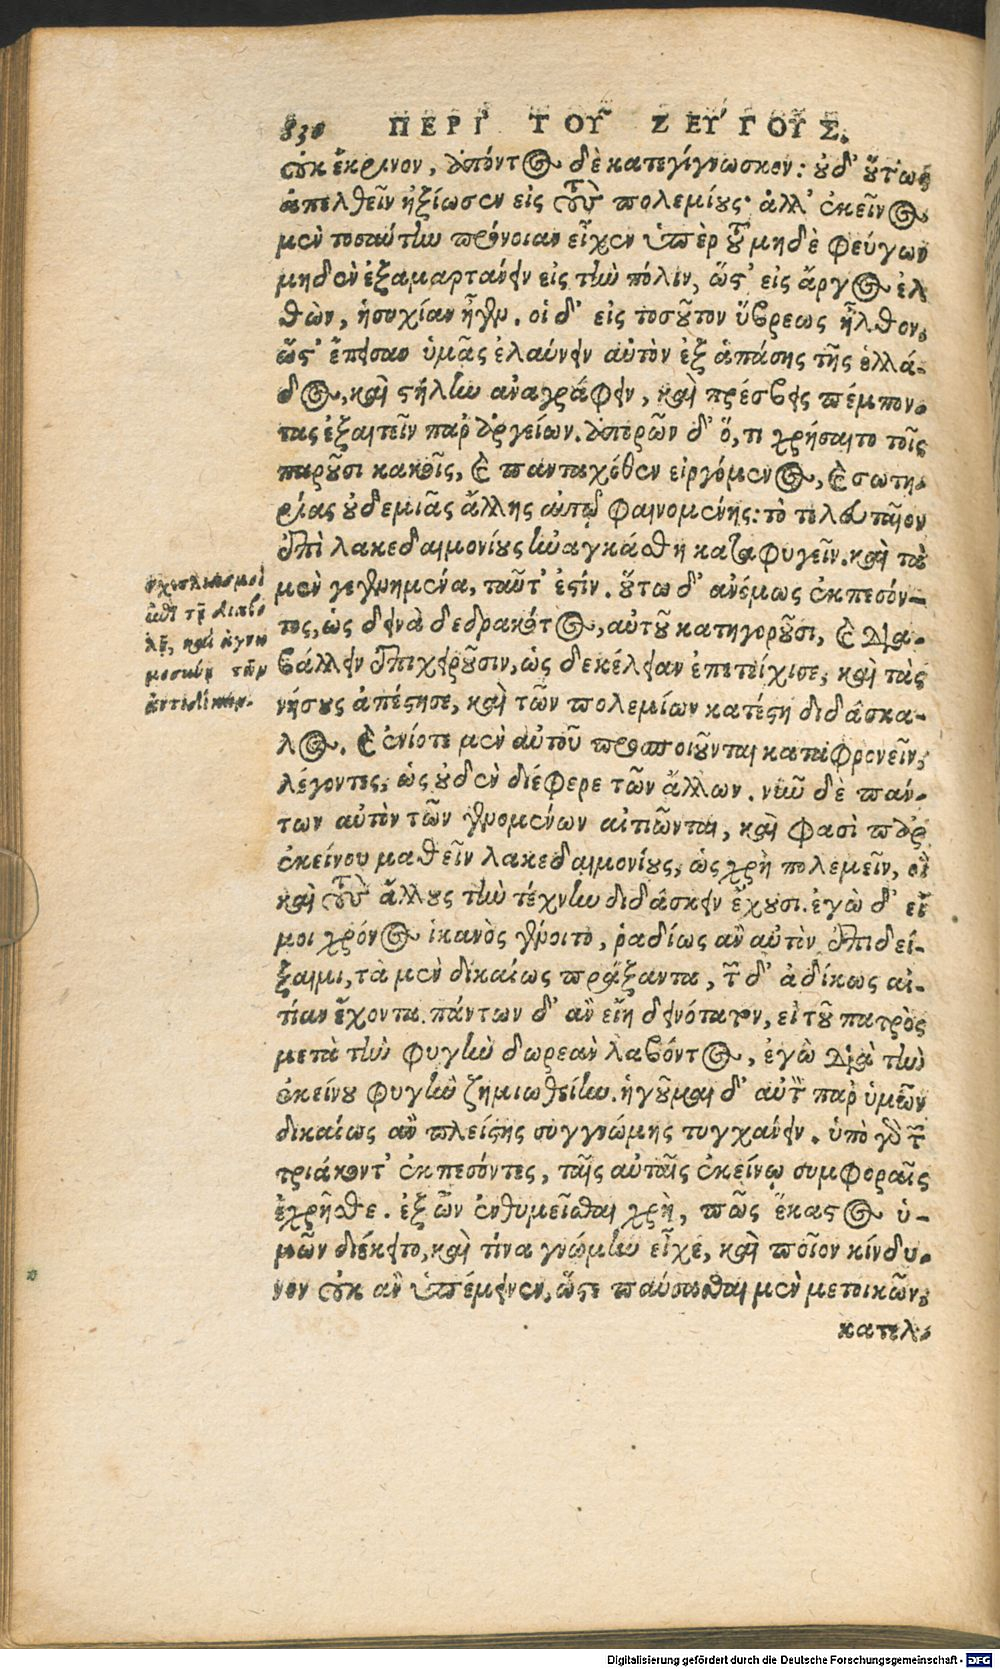 830 ΠΕΡΙ ΤΟΥ ΖΕΥΓΟΥΣ.
οὐκ ἔκρινον, ἀπόντος δὲ κατεγίγνωσκον: οὐδ' οὕτως
ἀπελθεῖν ἠξίωσεν εἰς τοὺς πολεμίους· ἀλλ' ἐκεῖνος
μὲν τοσαύτην πρόνοιαν εἶχεν ὑπὲρ τοῦ μηδὲ φεύγων
μηδὲν ἐξαμαρτάνειν εἰς τὴν πόλιν, ὥστ' εἰς ἄργος ἐλ
θὼν, ἡσυχίαν ἦγεν. οἱ δ' εἰς τοσοῦτον ὕβρεως ἦλθον,
ὥστ' ἔπεισαν ὑμᾶς ἐλαύνειν αὐτὸν ἐξ ἁπάσης τῆς ἑλλά-
δος, καὶ στήλην ἀναγράφειν, καὶ πρέσβεις πέμπον-
τας ἐξαιτεῖν παρ' ἀργείων. ἀπορῶν δ' ὅ, τι χρήσαιτο τοῖς
παροῦσι κακοῖς, καὶ πανταχόθεν εἰργόμενος, καὶ σωτη-
ρίας οὐδεμιᾶς ἄλλης αὐτῷ φαινομένης: τὸ τελευταῖον
ἐπὶ λακεδαιμονίους ἠναγκάσθη καταφυγεῖν. καὶ τὰ
μὲν γεγενημένα, ταῦτ' ἐστίν. οὕτω δ' ἀνέμως ἐκπεσόν-
τος, ὡς δεινὰ δεδρακότος, αὐτοῦ κατηγοροῦσι, καὶ δια-
βάλλειν ἐπιχειροῦσιν, ὡς δεκέλειαν ἐπετείχισε, καὶ τὰς
νήσους ἀπέστησε, καὶ τῶν πολεμίων κατέστη διδάσκα-
λος. καὶ ἐνίοτε μὲν αὐτοῦ προσποιοῦνται καταφρονεῖν,
λέγοντες, ὡς οὐδὲν διέφερε τῶν ἄλλων. νῦν δὲ πάν-
των αὐτὸν τῶν γενομένων αἰτιῶνται, καὶ φασὶ παρ'
ἐκείνου μαθεῖν λακεδαιμονίους, ὡς χρὴ πολεμεῖν, οἳ
καὶ τοὺς ἄλλους τὴν τέχνην διδάσκειν ἔχουσι. ἐγὼ δ' εἴ
μοι χρόνος ἱκανὸς γένοιτο, ῥαδίως ἂν αὐτὸν ἐπιδεί-
ξαιμι, τὰ μὲν δικαίως πράξαντα, τῶν δ' ἀδίκως αἰ-
τίαν ἔχοντα. πάντων δ' ἂν εἴη δεινότατον, εἰ τοῦ πατρὸς
μετὰ τὴν φυγὴν δωρεὰν λαβόντος, ἐγὼ διὰ τὴν
ἐκείνου φυγὴν ζημιωθείην. ἡγοῦμαι δ' αὐτὸν παρ' ὑμῶν
δικαίως ἂν πλείστης συγγνώμης τυγχάνειν. ὑπὸ γὰρ τῶν
τριάκοντ' ἐκπεσόντες, ταῖς αὐταῖς ἐκείνῳ συμφοραῖς
ἐχρῆσθε. ἐξ ὧν ἐνθυμεῖσθαι χρὴ, πῶς ἕκαστος ὑ-
μῶν διέκειτο, καὶ τίνα γνώμην εἶχε, καὶ ποῖον κίνδυ-
νον οὐκ ἂν ὑπέμεινεν, ὥστε παύσασθαι μὲν μετοικῶν,
κατελ-
σχετλιασμοὶ
ἐπὶ τῇ διαβο
λῇ, καὶ ἀγνω
μοσύνῃ τῶν
ἀντιδίκων.
Digitalisierung gefördert durch die Deutsche Forschungsgemeinschaft - DFG